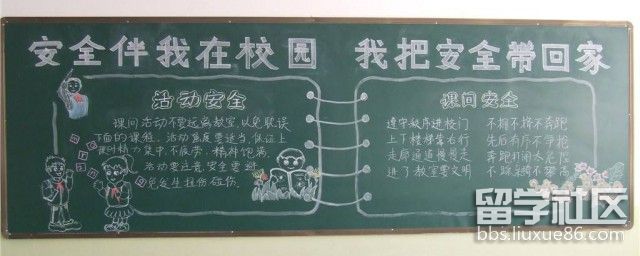 安全伴我在校园 我把安全带回家
活动安全
课间活动不要远离教室,以免耽误
下面的课程。活动强度要适当,保证上
课时精力集中,不疲劳,精神饱满。
活动要注意安全,要避
免发生扭伤碰伤。
课间安全
遵守秩序进校门 不拥不挤不奔跑
上下楼梯靠右行 先后有序不争抢
走廊通道慢慢走 奔跑打闹太危险
进了教室要文明
留学社区
bbs.liuxue86.com